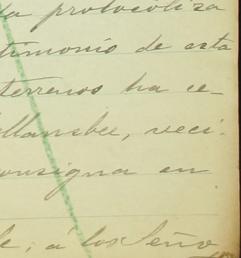 la protocoliza
timonio de esta
terrenos ha ce
llansbee, veci-
onsigna en
á los Seño